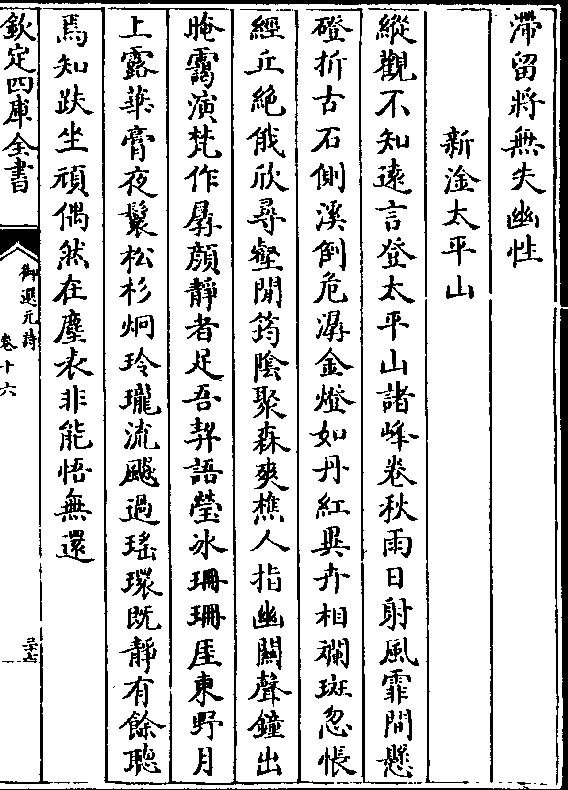 滯留將無失幽性
新淦太平山
縱觀不知遠言登太平山諸峰卷秋雨日射風霏間懸
磴折古石側溪倒危潺金燈如丹紅異卉相斕斑忽悵
經丘絶俄欣尋壑閒筠陰聚森爽樵人指幽關聲鐘出
晻靄演梵作孱顔靜者足吾契語瑩冰珊珊崖東野月
上露華膏夜鬟松杉炯玲瓏流飈過瑤環既靜有餘聽
焉知趺坐頑偶然在塵表非能悟無還
欽定四庫全書
御選元詩
卷十六